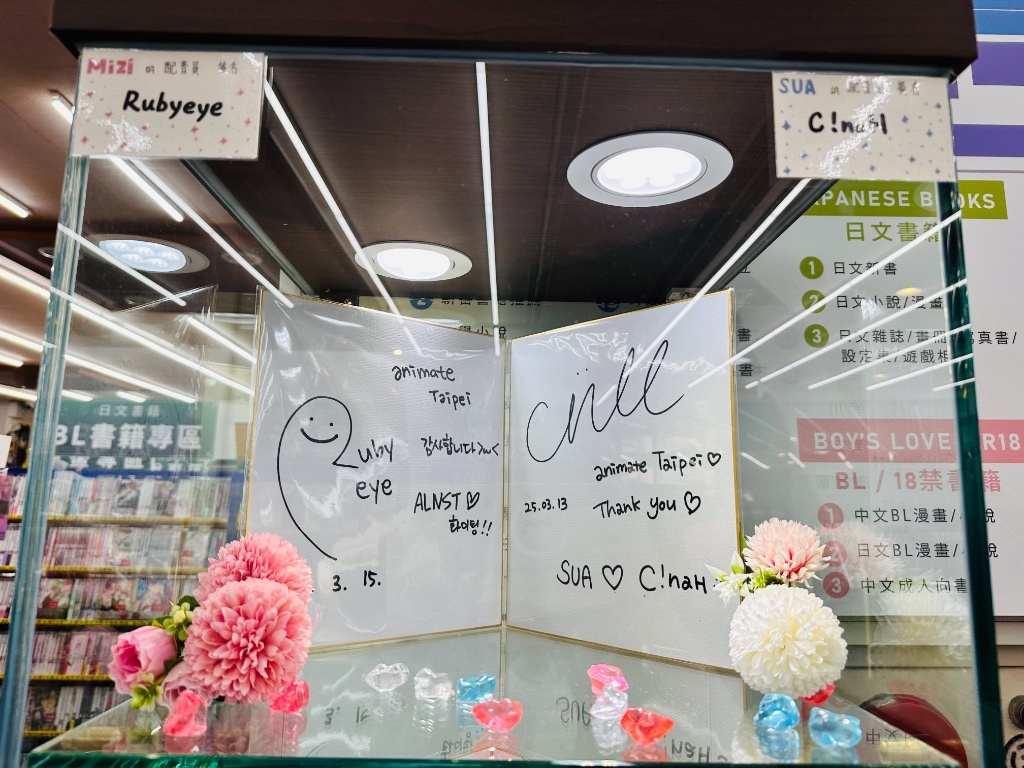 Mizi 的 配音員 簽名
Rubyeye
SUA 的 配音員 簽名
C!naH
animate
Taipei
Ruby
eye
감사합니다
ALNST♡
화이팅!!
3. 15.
animate Taipei♡
25.03.13
Thank you ♡
SUA ♡ C!naH
JAPANESE BOOKS
日文書籍
1 日文新書
2 日文小說/漫畫
3 日文雜誌/畫冊/寫真書/
設定集/遊戲
BOY'S LOVE R18
BL / 18禁書籍
1 中文BL漫畫/小說
2 日文BL漫畫/小說
3 中文成人向書
日文書籍
BL書籍專區